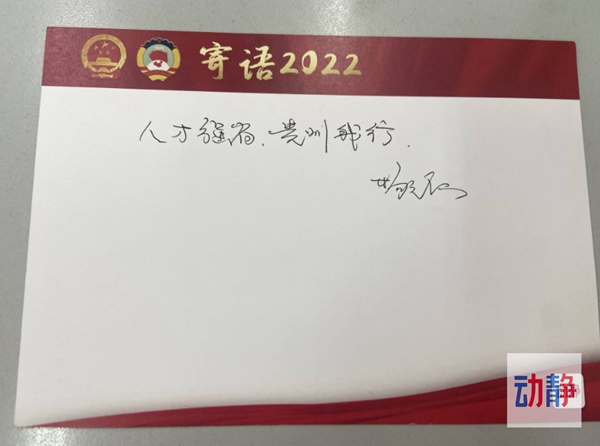 寄语2022
人才强省、贵州我行.
动静